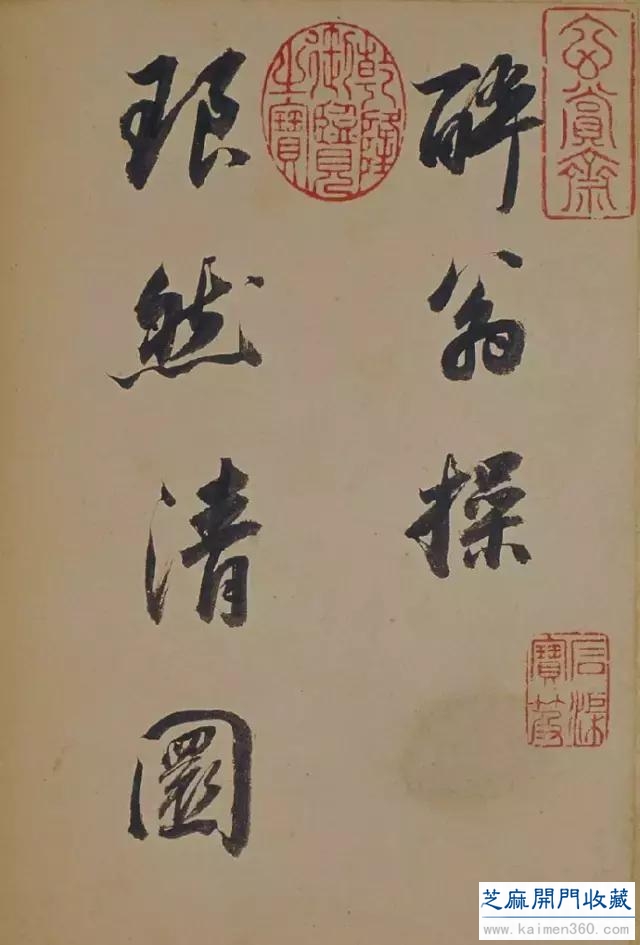 玄賞齋
醉翁操
石渠
寶笈
乾隆
御覽
之寶
琅然清圜
芝麻開門收藏
www.kaimen360.com